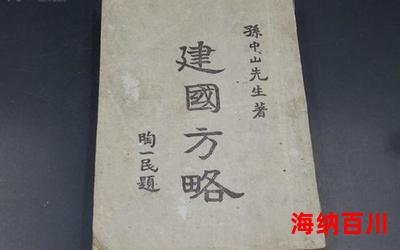 孫中山先生著
建國方略
陶一民題
海纳百川